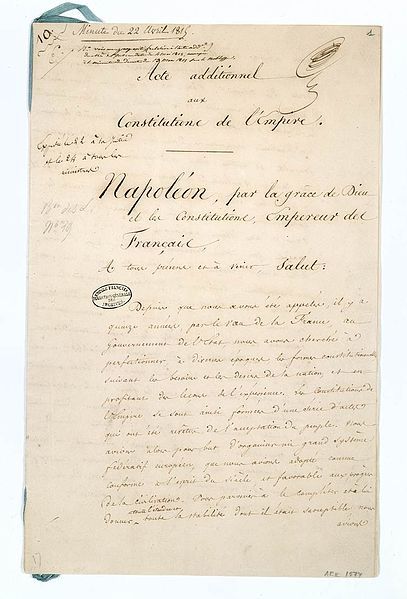 Minute du 22 Avril 1815.
1
Acte additionnel
aux
Constitutions de l'Empire.
Expédié le 22 à la Justice
et le 24 à tous les
ministres
Napoléon, par la grâce de Dieu
et les Constitutions, Empereur des
Français,
A tous présens et à venir, Salut:
ARCHIVES
Depuis que nous avons été appelés, il y a
quinze années par le vœu de la France, au
Gouvernement de l'Etat nous avons cherché à
perfectionner, à diverses époques les formes constitutionnelles
suivant les besoins et les désirs de la nation et en
profitant des leçons de l'expérience. Les Constitutions de
l'Empire se sont ainsi formées d'une série d'actes
qui ont été revêtus de l'acceptation du peuple. Nous
avions alors pour but d'organiser un grand système
fédératif européen, que nous avions adopté comme
conforme à l'esprit du siècle et favorable aux progrès
de la civilisation. Pour parvenir à le compléter et à lui
donner toute l'étendue et toute la stabilité dont il était susceptible nous
avions
AE I